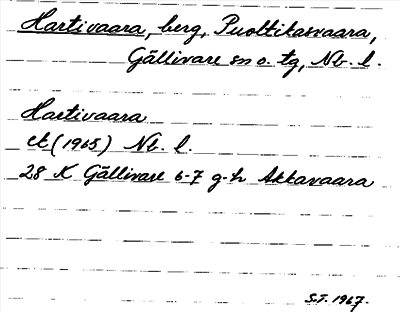 Hartivaara, berg, Puolttikasvaara,
Gällivare sn o. tg, Nb. l.
Hartivaara
ek (1965) Nb. l.
28 K Gällivare 6-7 g-h Akkavaara
S.T. 1967.